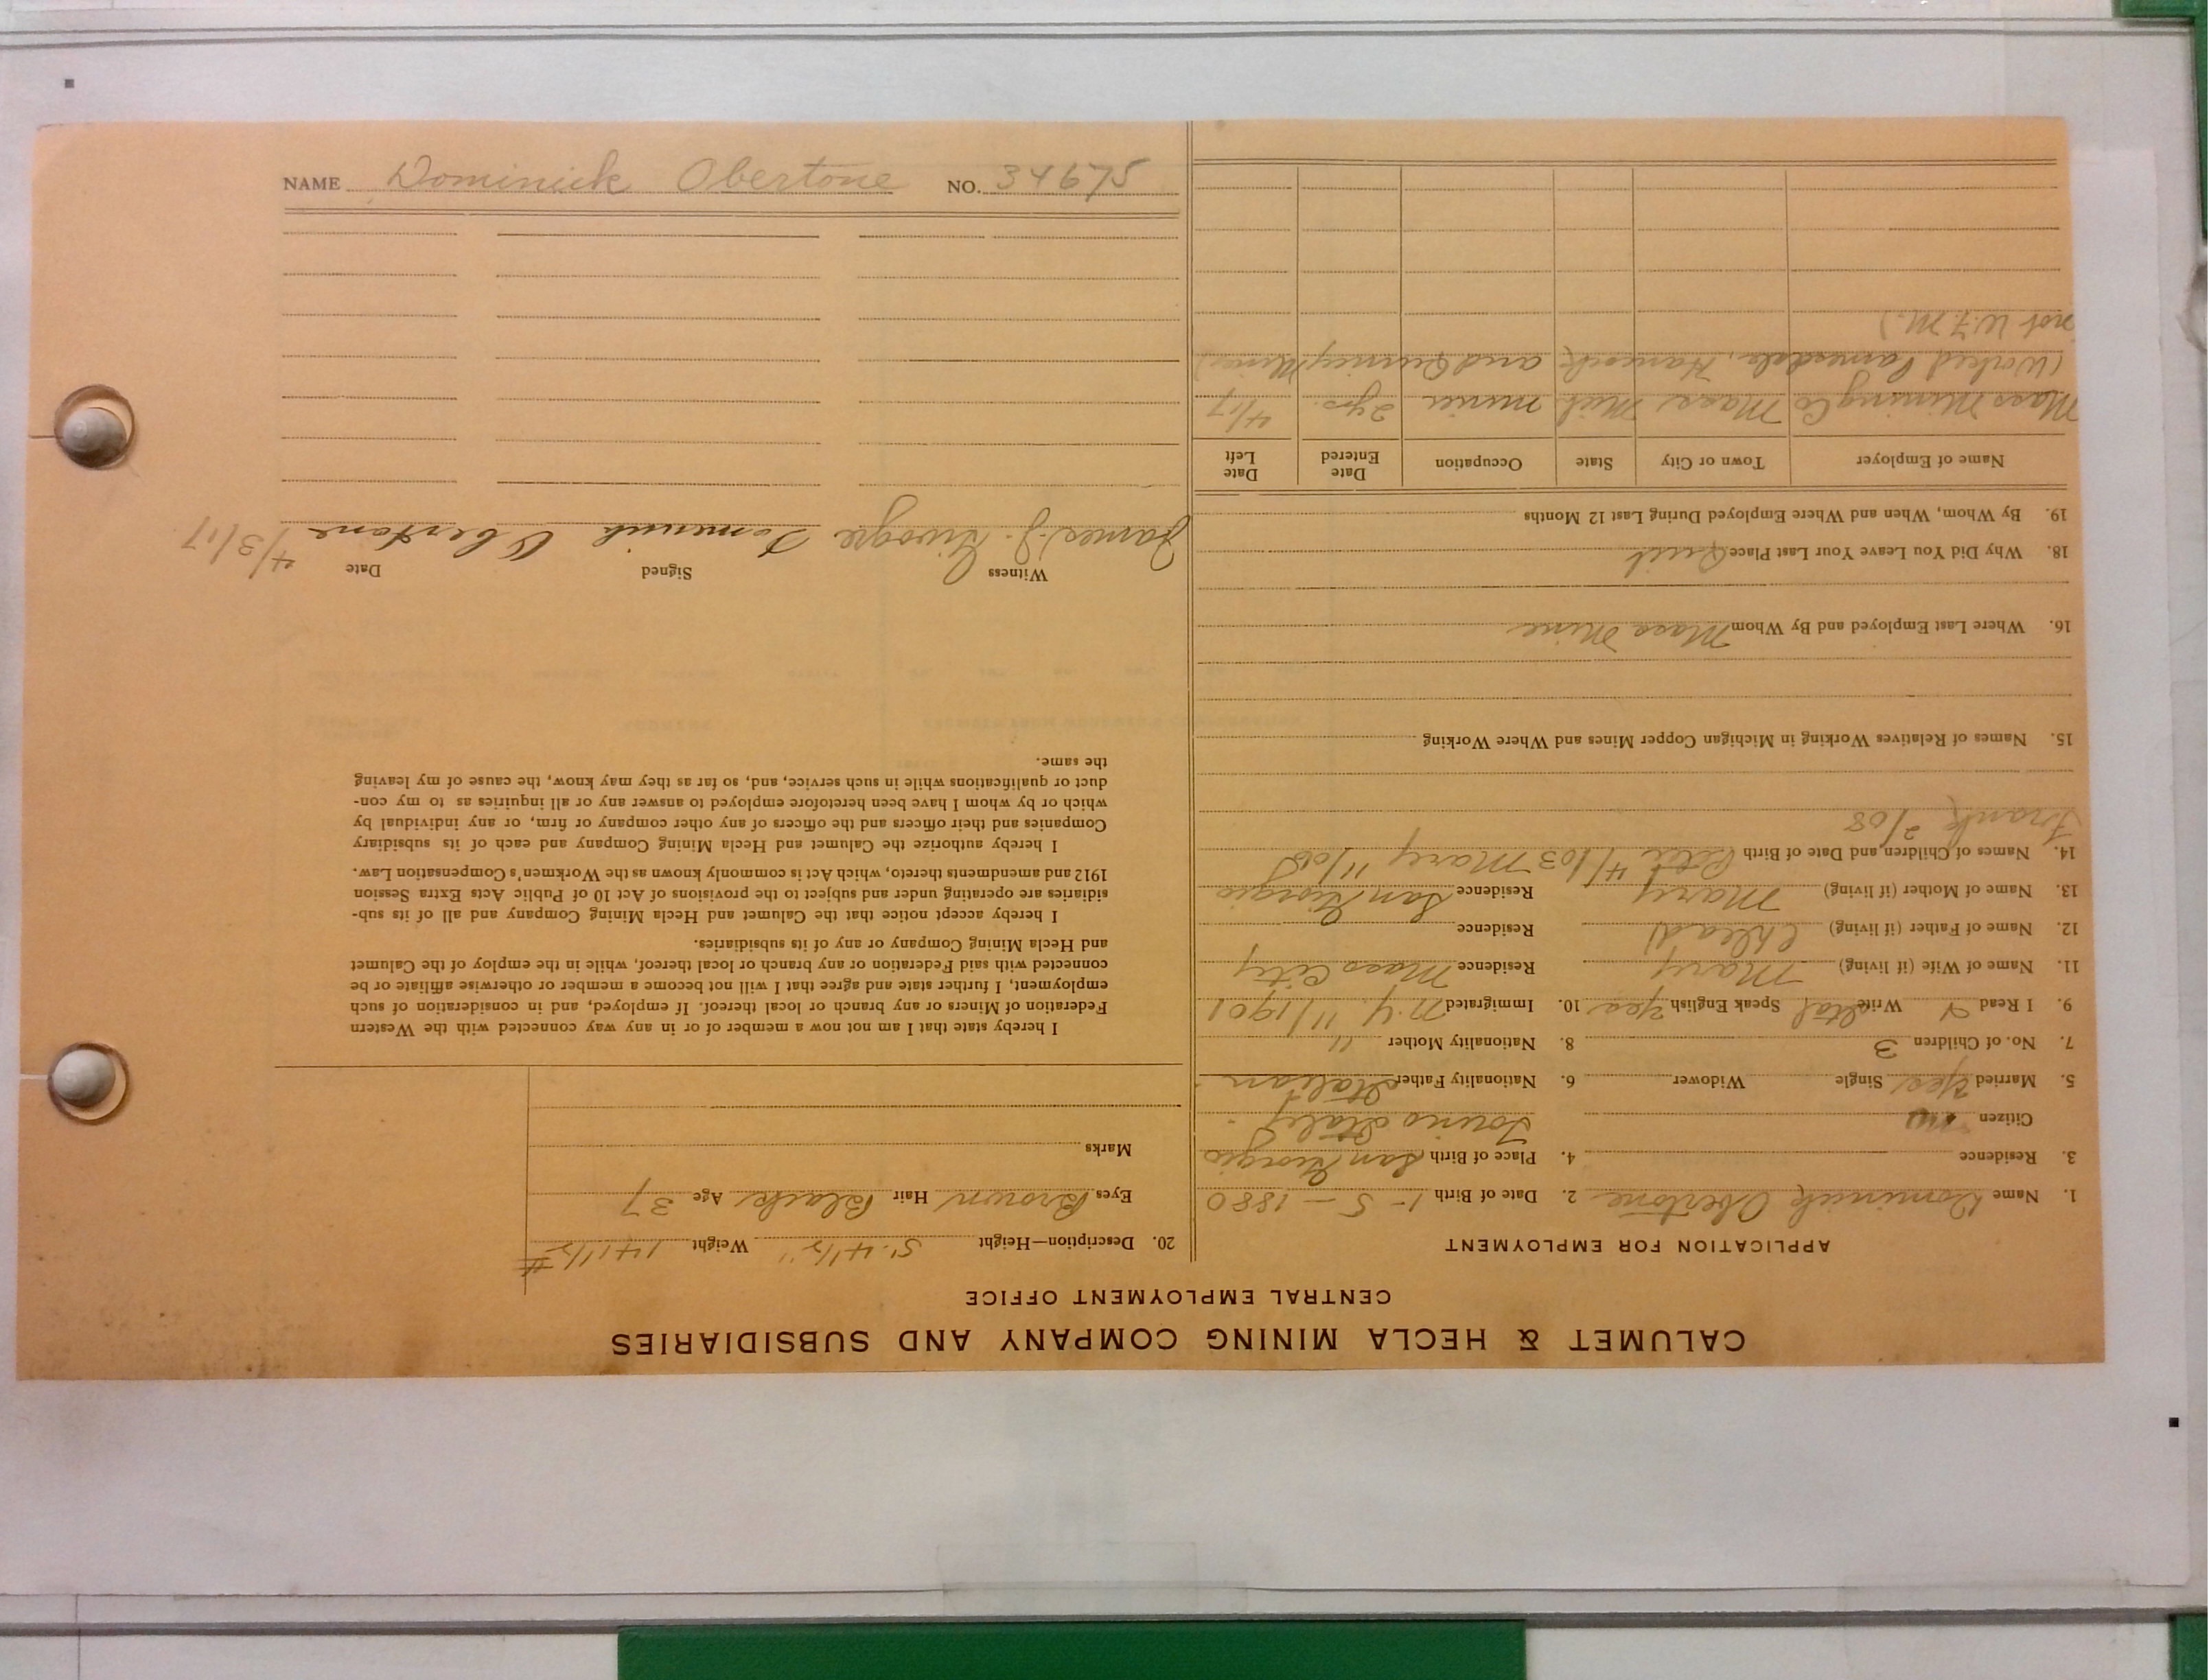 NAME Dominick Obertone NO. 34675
CALUMET & HECLA MINING COMPANY AND SUBSIDIARIES
CENTRAL EMPLOYMENT OFFICE
APPLICATION FOR EMPLOYMENT
1. Name Dominick Obertone 2. Date of Birth 1-5-1880
3. Residence 4. Place of Birth San Giorgio
Citizen Torino Italy
5. Married Yes Single Widower 6. Nationality Father Italian
7. No. of Children 3 8. Nationality Mother "
9. I Read & Write Ital Speak English Yes 10. Immigrated N.Y. 11/1901
11. Name of Wife (if living) Mary Residence Mass City
12. Name of Father (if living) (Dead) Residence
13. Name of Mother (if living) Mary Residence San Giorgio
14. Names of Children and Date of Birth 4/03 Mary 11/05
Frank 2/08
15. Names of Relatives Working in Michigan Copper Mines and Where Working
16. Where Last Employed and By Whom Mass Mine
18. Why Did You Leave Your Last Place Quit
19. By Whom, When and Where Employed During Last 12 Months
Name of Employer Town or City State Occupation Date Entered Date Left
Mass Mining Co Mass Mich miner 2 yrs. 4/17
(Worked Painesdale, Hancock and Quincy Mines)
not W.F.M.)
20. Description—Height 5' 4 1/2" Weight 141 1/2 #
Eyes Brown Hair Black Age 37
Marks
I hereby state that I am not now a member of or in any way connected with the Western
Federation of Miners or any branch or local thereof. If employed, and in consideration of such
employment, I further state and agree that I will not become a member or otherwise affiliate or be
connected with said Federation or any branch or local thereof, while in the employ of the Calumet
and Hecla Mining Company or any of its subsidiaries.
I hereby accept notice that the Calumet and Hecla Mining Company and all of its sub-
sidiaries are operating under and subject to the provisions of Act 10 of Public Acts Extra Session
1912 and amendments thereto, which Act is commonly known as the Workmen's Compensation Law.
I hereby authorize the Calumet and Hecla Mining Company and each of its subsidiary
Companies and their officers and the officers of any other company or firm, or any individual by
which or by whom I have been heretofore employed to answer any or all inquiries as to my con-
duct or qualifications while in such service, and, so far as they may know, the cause of my leaving
the same.
Witness Signed Date
James J. Domenick Obertone 4/3/17